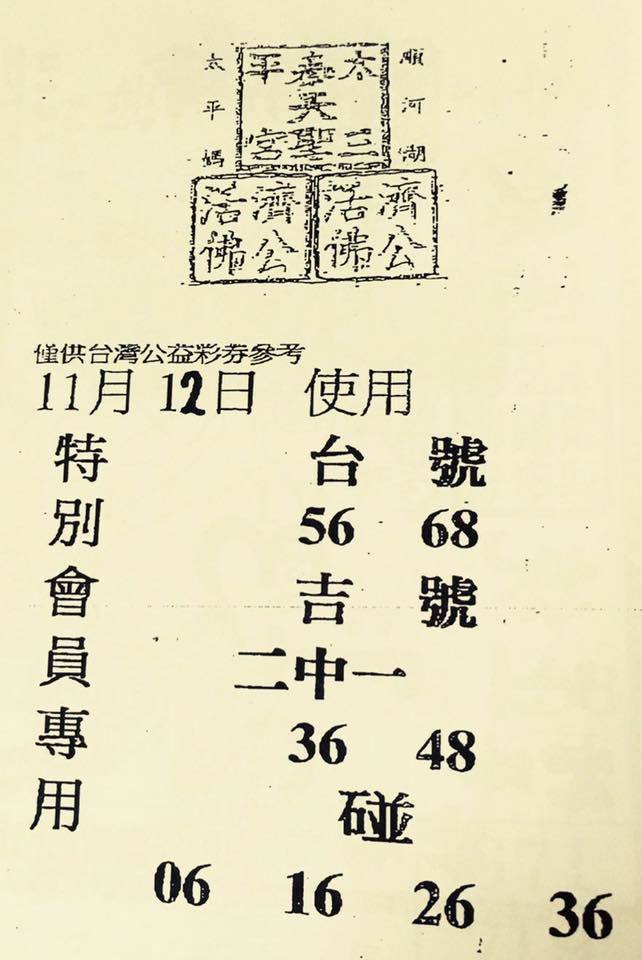 順河湖
太平媽
太 平
三聖宮
濟公活佛
濟公活佛
僅供台灣公益彩券參考
11月 12日 使用
特別會員專用
台 號
56 68
吉 號
二中一
36 48
碰
06 16 26 36